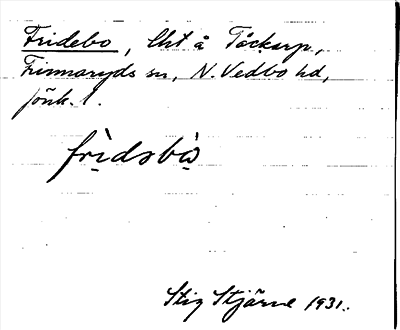 Fridebo, lht å Tåckarp,
Linnaryds sn, N. Vedbo hd,
Jönk. l.
frìdsbò̤
Stig Stjärne 1931.